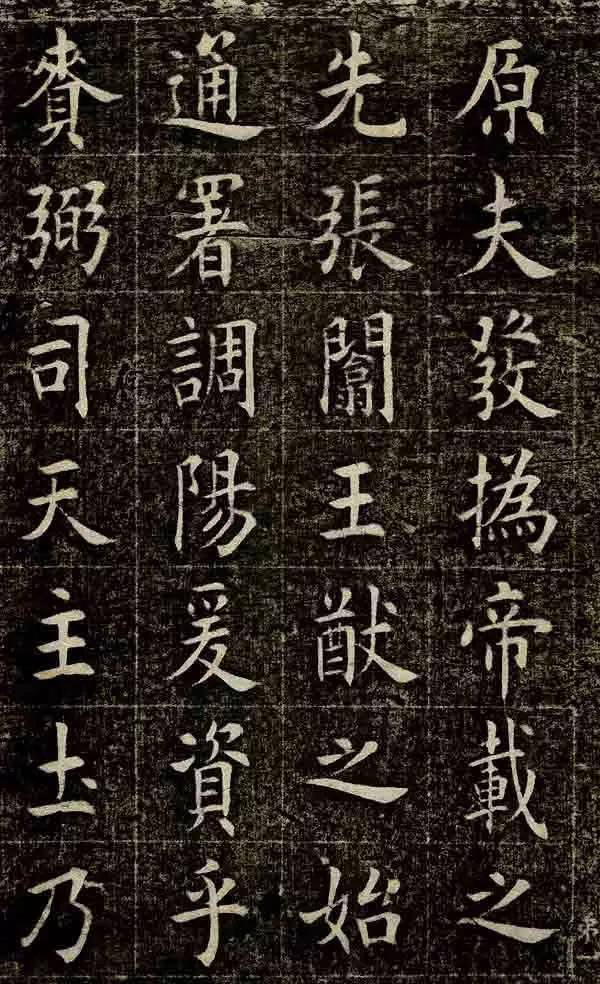 原夫發撝帝載之
先張闟王猷之始
通署調陽爰資乎
賚弼司天主土乃
弟一